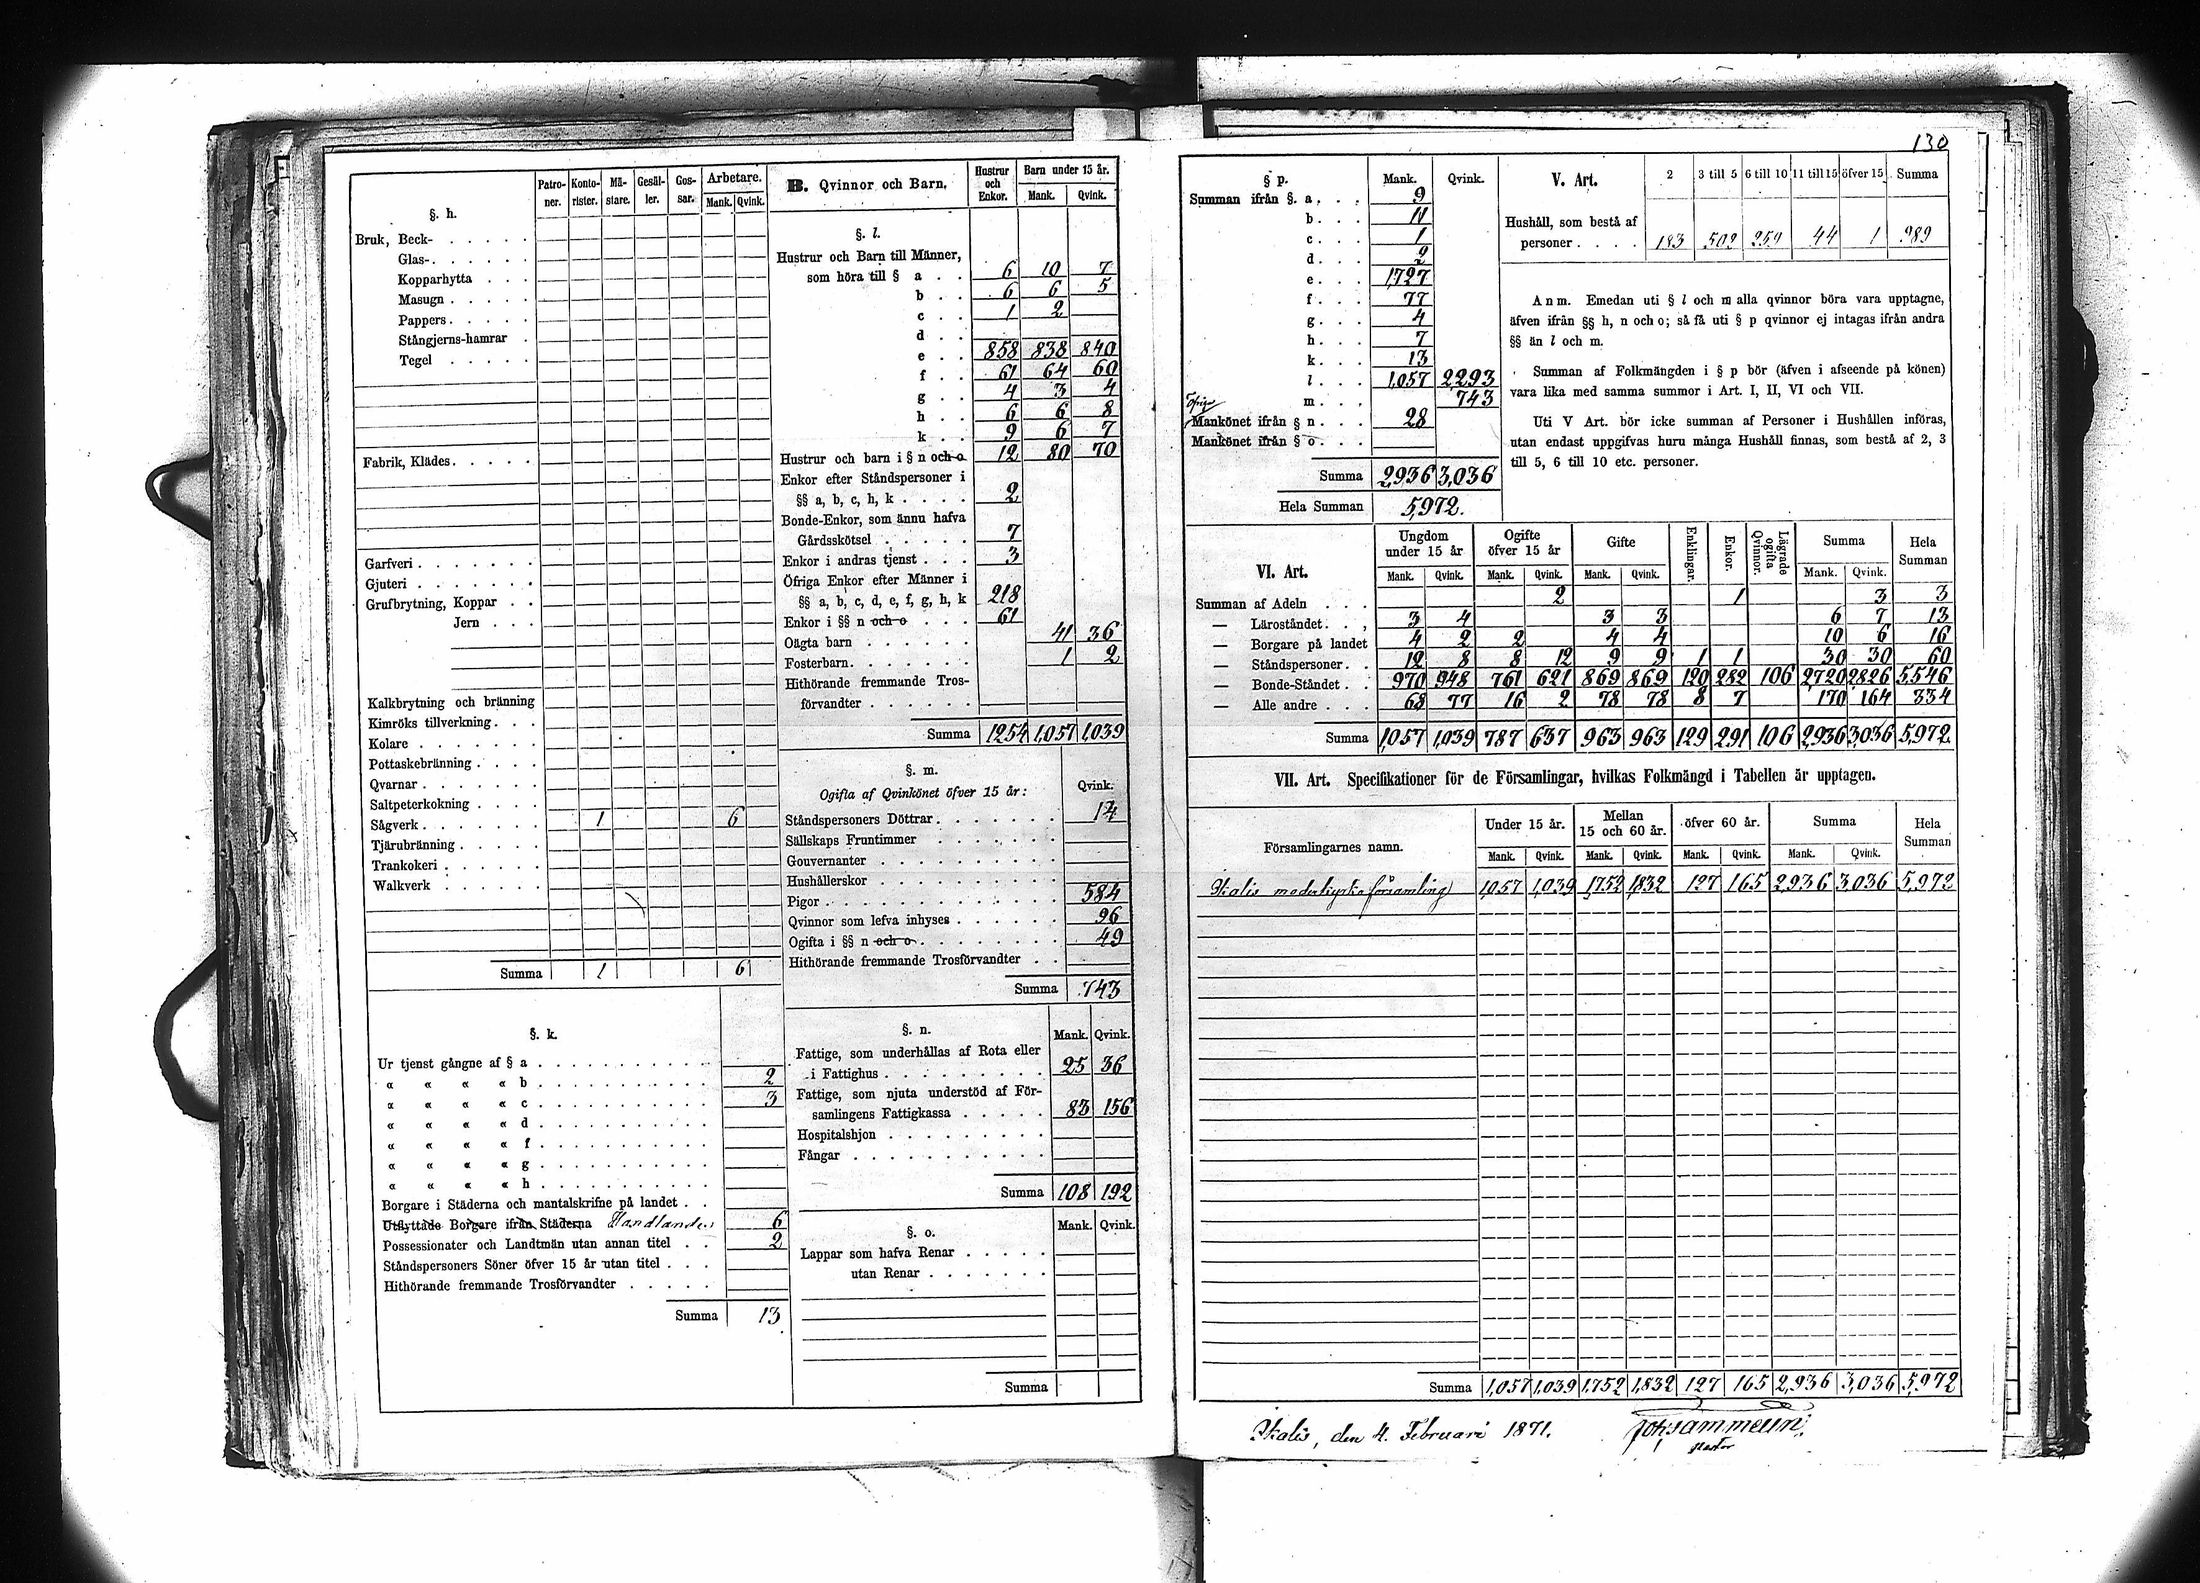 130
§. h.
Patroner. Kontorister. Mästare. Gesäller. Gossar. Arbetare.
Mank. Qvink.
Bruk, Beck-
Glas-
Kopparhytta
Masugn
Pappers
Stångjerns-hamrar
Tegel
Fabrik, Klädes
Garfveri
Gjuteri
Grufbrytning, Koppar
Jern
Kalkbrytning och bränning
Kimröks tillverkning
Kolare
Pottaskebränning
Qvarnar
Saltpeterkokning
Sågverk 1 6
Tjärubränning
Trankokeri
Walkverk
Summa 1 6
§. k.
Ur tjenst gångne af § a
« « « « b 2
« « « « c 3
« « « « d
« « « « f
« « « « g
« « « « h
Borgare i Städerna och mantalskrifne på landet
Utflyttade Borgare ifrån Städerna Handlande 6
Possessionater och Landtmän utan annan titel 2
Ståndspersoners Söner öfver 15 år utan titel
Hithörande fremmande Trosförvandter
Summa 13
B. Qvinnor och Barn.
Hustrur och Enkor. Barn under 15 år.
Mank. Qvink.
§. l.
Hustrur och Barn till Männer,
som höra till § a 6 10 7
b 6 6 5
c 1 2
d
e 858 838 840
f 61 64 60
g 4 3 4
h 6 6 8
k 9 6 7
Hustrur och barn i § n och o 12 80 70
Enkor efter Ståndspersoner i
§§ a, b, c, h, k 2
Bonde-Enkor, som ännu hafva
Gårdsskötsel 7
Enkor i andras tjenst 3
Öfriga Enkor efter Männer i
§§ a, b, c, d, e, f, g, h, k 218
Enkor i §§ n och o 61
Oägta barn 41 36
Fosterbarn 1 2
Hithörande fremmande Trosförvandter
Summa 1254 1,057 1,039
§. m.
Ogifta af Qvinkönet öfver 15 år: Qvink.
Ståndspersoners Döttrar 14
Sällskaps Fruntimmer
Gouvernanter
Hushållerskor
Pigor 584
Qvinnor som lefva inhyses 96
Ogifta i §§ n och o 49
Hithörande fremmande Trosförvandter
Summa 743
§. n. Mank. Qvink.
Fattige, som underhållas af Rota eller
i Fattighus 25 36
Fattige, som njuta understöd af Församlingens Fattigkassa 83 156
Hospitalshjon
Fångar
Summa 108 192
§. o. Mank. Qvink.
Lappar som hafva Renar
utan Renar
Summa
§ p. Mank. Qvink.
Summan ifrån §. a 9
b 11
c 1
d 2
e 1,727
f 77
g 4
h 7
k 13
l 1,057 2,293
m 743
öfriga
Mankönet ifrån § n 28
Mankönet ifrån § o
Summa 2,936 3,036
Hela Summan 5,972.
V. Art. 2 3 till 5 6 till 10 11 till 15 öfver 15 Summa
Hushåll, som bestå af
personer 183 502 259 44 1 989
Anm. Emedan uti § l och m alla qvinnor böra vara upptagne,
äfven ifrån §§ h, n och o; så få uti § p qvinnor ej intagas ifrån andra
§§ än l och m.
Summan af Folkmängden i § p bör (äfven i afseende på könen)
vara lika med samma summor i Art. I, II, VI och VII.
Uti V Art. bör icke summan af Personer i Hushållen införas,
utan endast uppgifvas huru många Hushåll finnas, som bestå af 2, 3
till 5, 6 till 10 etc. personer.
VI. Art.
Ungdom under 15 år Ogifte öfver 15 år Gifte Enklingar. Enkor. Lägrade ogifta Qvinnor. Summa Hela Summan
Mank. Qvink. Mank. Qvink. Mank. Qvink. Mank. Qvink.
Summan af Adeln 2 1 3 3
— Läroståndet 3 4 3 3 6 7 13
— Borgare på landet 4 2 2 4 4 10 6 16
— Ståndspersoner 12 8 8 12 9 9 1 1 30 30 60
— Bonde-Ståndet 970 948 761 621 869 869 120 282 106 2720 2826 5,546
— Alle andre 68 77 16 2 78 78 8 7 170 164 334
Summa 1,057 1,039 787 637 963 963 129 291 106 2,936 3,036 5,972
VII. Art. Specifikationer för de Församlingar, hvilkas Folkmängd i Tabellen är upptagen.
Församlingarnes namn. Under 15 år. Mellan 15 och 60 år. öfver 60 år. Summa Hela Summan
Mank. Qvink. Mank. Qvink. Mank. Qvink. Mank. Qvink.
Ikalis moderkyrko församling 1,057 1,039 1,752 1,832 127 165 2,936 3,036 5,972
Summa 1,057 1,039 1,752 1,832 127 165 2,936 3,036 5,972
Ikalis, den 4. Februari 1871.